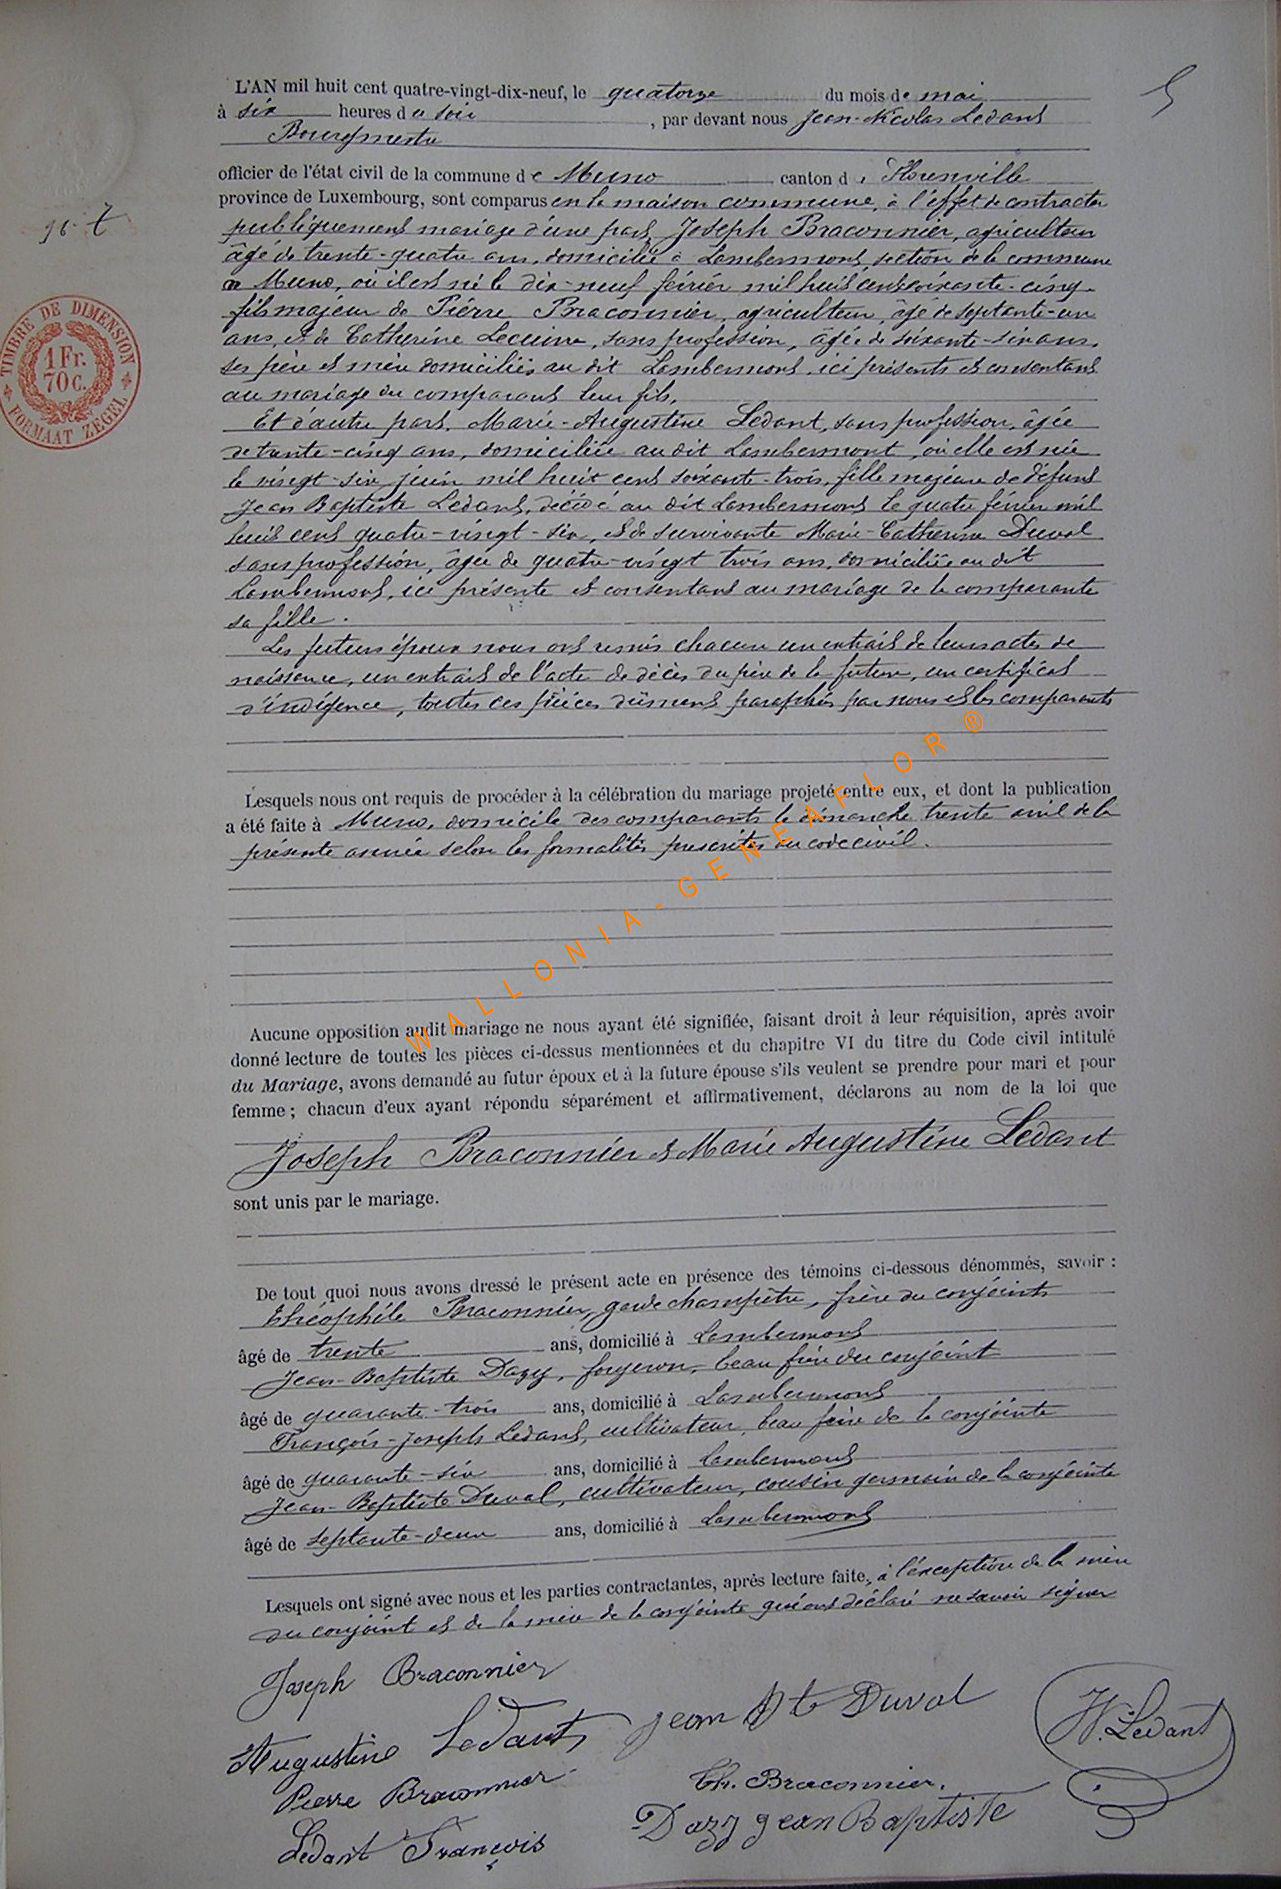 5
L'AN mil huit cent quatre-vingt-dix-neuf, le quatorze du mois de mai
à six heures du soir, par devant nous Jean-Nicolas Ledant
Bourgmestre
officier de l'état civil de la commune de Muno canton de Florenville
province de Luxembourg, sont comparus en la maison commune, à l'effet de contracter
publiquement mariage d'une part, Joseph Braconnier, agriculteur
âgé de trente-quatre ans, domicilié à Lambermont, section de la commune
de Muno, où il est né le dix-neuf février mil huit cent soixante-cinq,
fils majeur de Pierre Braconnier, agriculteur, âgé de septante-un
ans, et de Catherine, sans profession, âgée de soixante-six ans,
ses père et mère domiciliés au dit Lambermont, ici présents et consentant
au mariage du comparant leur fils.
Et d'autre part, Marie-Augustine Ledant, sans profession, âgée
de trente-cinq ans, domiciliée au dit Lambermont, où elle est née
le vingt-six juin mil huit cent soixante-trois, fille majeure de défunt
Jean Baptiste Ledant, décédé au dit Lambermont le quatre février mil
huit cent quatre-vingt-six, et de survivante Marie-Catherine Duval
sans profession, âgée de quatre-vingt trois ans, domiciliée au dit
Lambermont, ici présente et consentant au mariage de la comparante
sa fille.
Les futurs époux nous ont remis chacun un extrait de leurs actes de
naissance, un extrait de l'acte de décès du père de la future, un certificat
d'indigence, toutes ces pièces dûment paraphées par nous et les comparants
TIMBRE DE DIMENSION
1 Fr.
70 C.
FORMAAT ZEGEL
Lesquels nous ont requis de procéder à la célébration du mariage projeté entre eux, et dont la publication
a été faite à Muno, domicile des comparants le dimanche trente avril de la
présente année selon les formalités prescrites au code civil.
WALLONIA-GENEAFLOR ®
Aucune opposition audit mariage ne nous ayant été signifiée, faisant droit à leur réquisition, après avoir
donné lecture de toutes les pièces ci-dessus mentionnées et du chapitre VI du titre du Code civil intitulé
du Mariage, avons demandé au futur époux et à la future épouse s'ils veulent se prendre pour mari et pour
femme ; chacun d'eux ayant répondu séparément et affirmativement, déclarons au nom de la loi que
Joseph Braconnier et Marie Augustine Ledant
sont unis par le mariage.
De tout quoi nous avons dressé le présent acte en présence des témoins ci-dessous dénommés, savoir :
Théophile Braconnier, garde champêtre, frère du conjoint
âgé de trente ans, domicilié à Lambermont
Jean-Baptiste Dazy, forgeron, beau frère du conjoint
âgé de quarante-trois ans, domicilié à Lambermont
François-Joseph Ledant, cultivateur, beau frère de la conjointe
âgé de quarante-six ans, domicilié à Lambermont
Jean-Baptiste Duval, cultivateur, cousin germain de la conjointe
âgé de septante-deux ans, domicilié à Lambermont
Lesquels ont signé avec nous et les parties contractantes, après lecture faite, à l'exception de la mère
du conjoint et de la mère de la conjointe qui ont déclaré ne savoir signer
Joseph Braconnier
Augustine Ledant
Jean Bte Duval
N. Ledant
Pierre Braconnier
Th. Braconnier.
Dazy Jean Baptiste
Ledant François